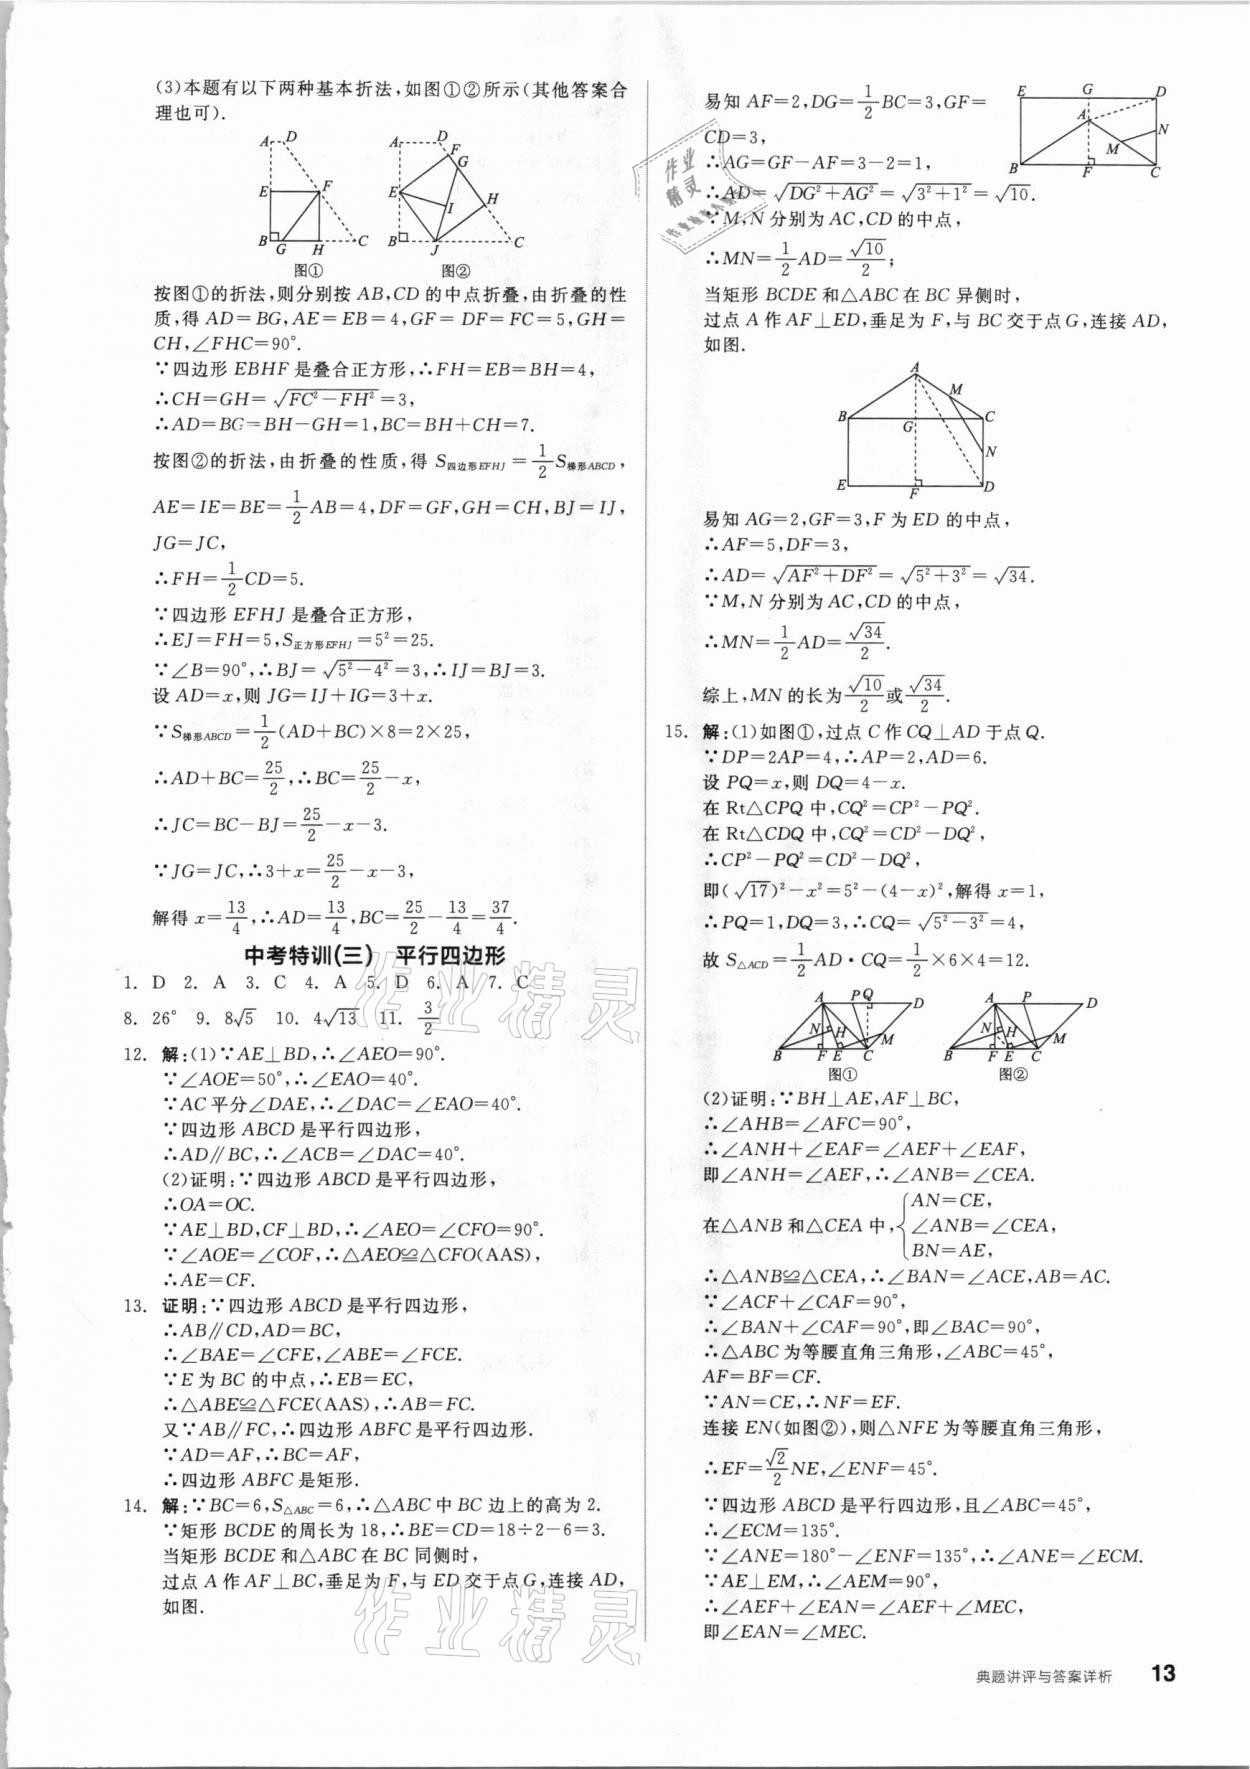 (3)本题有以下两种基本折法,如图①②所示(其他答案合
理也可).
A D E F B G H C
图①
A D F G E I H B J C
图②
按图①的折法,则分别按 AB,CD 的中点折叠,由折叠的性
质,得 AD=BG,AE=EB=4,GF=DF=FC=5,GH=
CH,∠FHC=90°.
∵四边形 EBHF 是叠合正方形,∴FH=EB=BH=4,
∴CH=GH=√(FC²-FH²)=3,
∴AD=BG=BH-GH=1,BC=BH+CH=7.
按图②的折法,由折叠的性质,得 S四边形EFHJ=1/2 S梯形ABCD,
AE=IE=BE=1/2 AB=4,DF=GF,GH=CH,BJ=IJ,
JG=JC,
∴FH=1/2 CD=5.
∵四边形 EFHJ 是叠合正方形,
∴EJ=FH=5,S正方形EFHJ=5²=25.
∵∠B=90°,∴BJ=√(5²-4²)=3,∴IJ=BJ=3.
设 AD=x,则 JG=IJ+IG=3+x.
∵S梯形ABCD=1/2(AD+BC)×8=2×25,
∴AD+BC=25/2,∴BC=25/2-x,
∴JC=BC-BJ=25/2-x-3.
∵JG=JC,∴3+x=25/2-x-3,
解得 x=13/4,∴AD=13/4,BC=25/2-13/4=37/4.
中考特训(三) 平行四边形
1. D 2. A 3. C 4. A 5. D 6. A 7. C
8. 26° 9. 8√5 10. 4√13 11. 3/2
12. 解:(1)∵AE⊥BD,∴∠AEO=90°.
∵∠AOE=50°,∴∠EAO=40°.
∵AC平分∠DAE,∴∠DAC=∠EAO=40°.
∵四边形 ABCD 是平行四边形,
∴AD∥BC,∴∠ACB=∠DAC=40°.
(2)证明:∵四边形 ABCD 是平行四边形,
∴OA=OC.
∵AE⊥BD,CF⊥BD,∴∠AEO=∠CFO=90°.
∵∠AOE=∠COF,∴△AEO≌△CFO(AAS),
∴AE=CF.
13. 证明:∵四边形 ABCD 是平行四边形,
∴AB∥CD,AD=BC,
∴∠BAE=∠CFE,∠ABE=∠FCE.
∵E 为 BC 的中点,∴EB=EC,
∴△ABE≌△FCE(AAS),∴AB=FC.
又∵AB∥FC,∴四边形 ABFC 是平行四边形.
∵AD=AF,∴BC=AF,
∴四边形 ABFC 是矩形.
14. 解:∵BC=6,S△ABC=6,∴△ABC 中 BC 边上的高为 2.
∵矩形 BCDE 的周长为 18,∴BE=CD=18÷2-6=3.
当矩形 BCDE 和△ABC 在 BC 同侧时,
过点 A 作 AF⊥BC,垂足为 F,与 ED 交于点 G,连接 AD,
如图.
易知 AF=2,DG=1/2 BC=3,GF=
CD=3,
∴AG=GF-AF=3-2=1,
∴AD=√(DG²+AG²)=√(3²+1²)=√10.
∵M,N 分别为 AC,CD 的中点,
∴MN=1/2 AD=√10/2;
E G D A N M B F C
当矩形 BCDE 和△ABC 在 BC 异侧时,
过点 A 作 AF⊥ED,垂足为 F,与 BC 交于点 G,连接 AD,
如图.
A M B G C N E F D
易知 AG=2,GF=3,F 为 ED 的中点,
∴AF=5,DF=3,
∴AD=√(AF²+DF²)=√(5²+3²)=√34.
∵M,N 分别为 AC,CD 的中点,
∴MN=1/2 AD=√34/2.
综上,MN 的长为√10/2或√34/2.
15. 解:(1)如图①,过点 C 作 CQ⊥AD 于点 Q.
∵DP=2AP=4,∴AP=2,AD=6.
设 PQ=x,则 DQ=4-x.
在 Rt△CPQ 中,CQ²=CP²-PQ².
在 Rt△CDQ 中,CQ²=CD²-DQ²,
∴CP²-PQ²=CD²-DQ²,
即(√17)²-x²=5²-(4-x)²,解得 x=1,
∴PQ=1,DQ=3,∴CQ=√(5²-3²)=4,
故 S△ACD=1/2 AD·CQ=1/2×6×4=12.
A P Q D N H M B F E C
图①
A P D N H M B F E C
图②
(2)证明:∵BH⊥AE,AF⊥BC,
∴∠AHB=∠AFC=90°,
∴∠ANH+∠EAF=∠AEF+∠EAF,
即∠ANH=∠AEF,∴∠ANB=∠CEA.
在△ANB 和△CEA 中,{AN=CE,
∠ANB=∠CEA,
BN=AE,
∴△ANB≌△CEA,∴∠BAN=∠ACE,AB=AC.
∵∠ACF+∠CAF=90°,
∴∠BAN+∠CAF=90°,即∠BAC=90°,
∴△ABC 为等腰直角三角形,∠ABC=45°,
AF=BF=CF.
∵AN=CE,∴NF=EF.
连接 EN(如图②),则△NFE 为等腰直角三角形,
∴EF=√2/2 NE,∠ENF=45°.
∵四边形 ABCD 是平行四边形,且∠ABC=45°,
∴∠ECM=135°.
∵∠ANE=180°-∠ENF=135°,∴∠ANE=∠ECM.
∵AE⊥EM,∴∠AEM=90°,
∴∠AEF+∠EAN=∠AEF+∠MEC,
即∠EAN=∠MEC.
典题讲评与答案详析 13
作业精灵
作业精灵
作业精灵